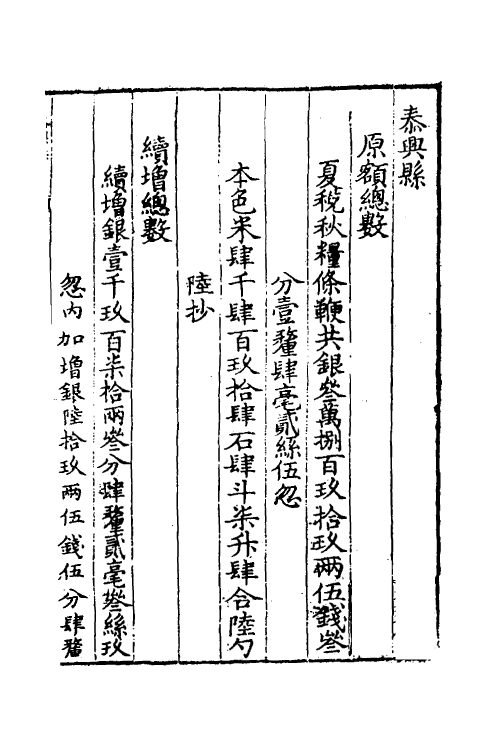 泰興縣
原額總數
夏稅秋糧條鞭共銀叁萬捌百玖拾玖兩伍錢叁
分壹釐肆毫貳絲伍忽
本色米肆千肆百玖拾肆石肆斗柒升肆合陸勺
陸抄
續增總數
續增銀壹千玖百柒拾兩叁分肆釐貳毫叁絲玖
忽內加增銀陸拾玖兩伍錢伍分肆釐